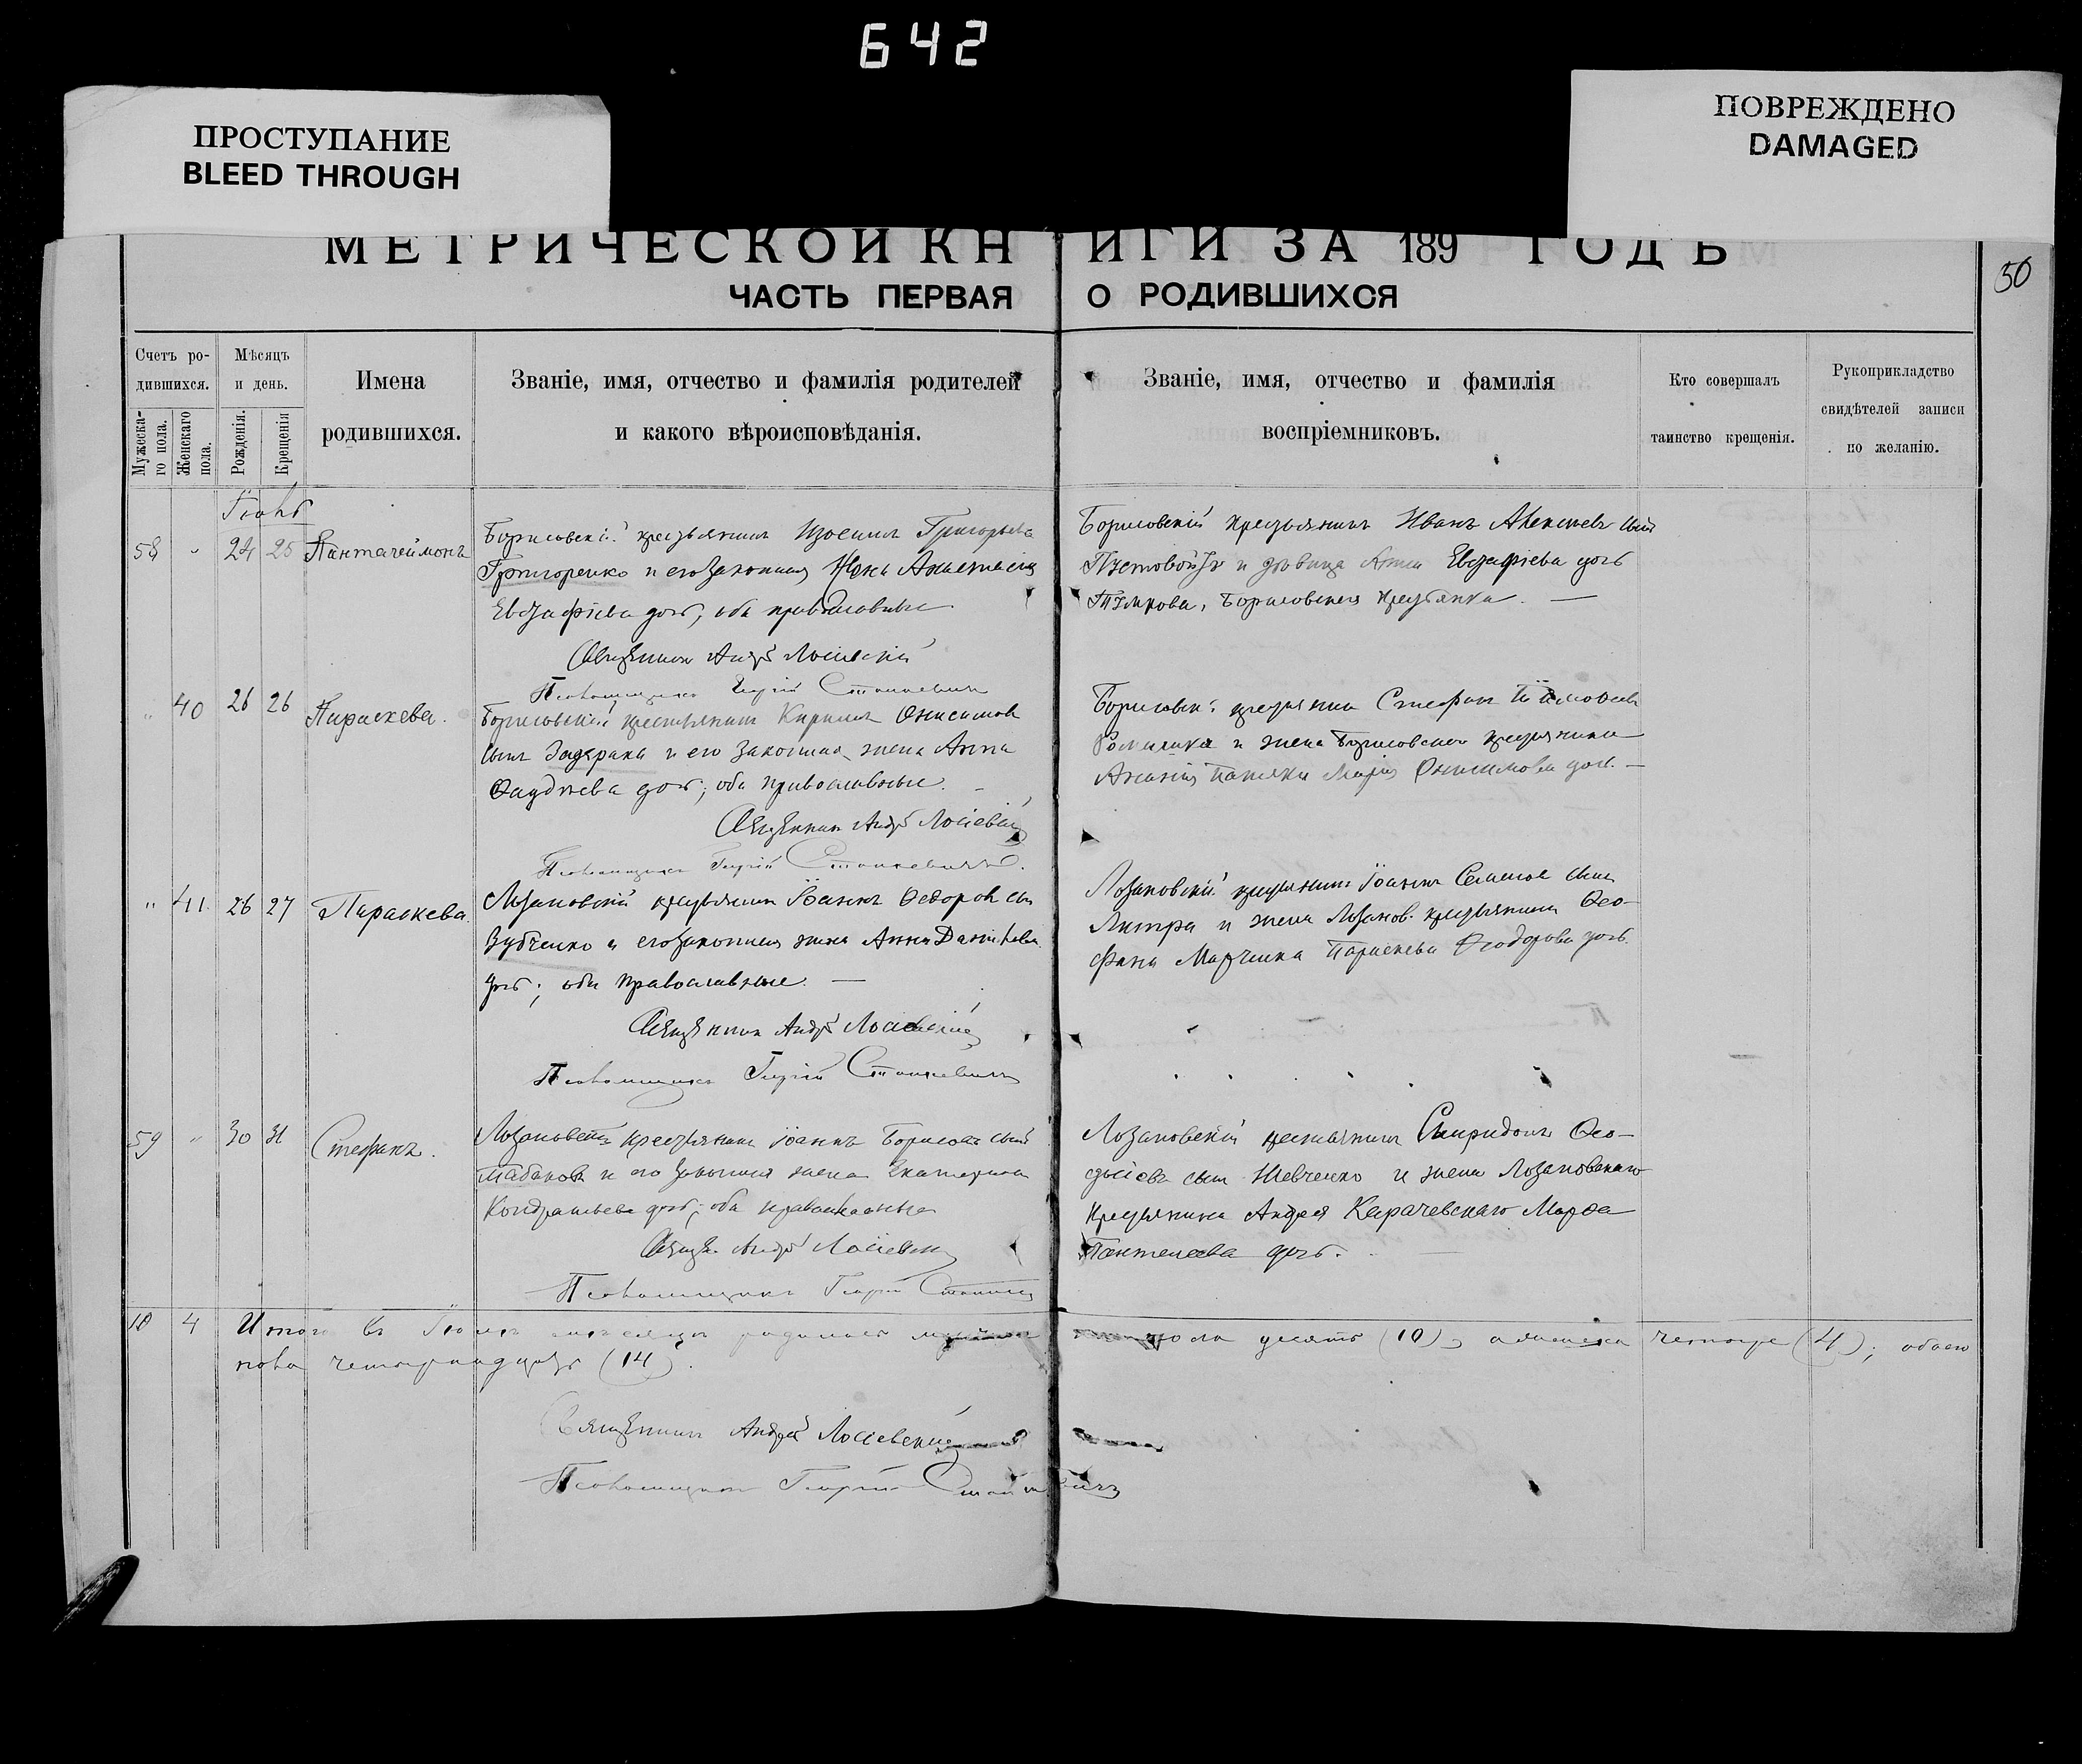 642
ПРОСТУПАНИЕ
BLEED THROUGH
ПОВРЕЖДЕНО
DAMAGED
МЕТРИЧЕСКОЙ КНИГИ ЗА 189 ГОДЪ
50
ЧАСТЬ ПЕРВАЯ О РОДИВШИХСЯ
Счетъ ро-
дившихся.
Мужеска-
го пола.
Женскаго
пола.
Мѣсяцъ
и день.
Рожденія.
Крещенія
Имена
родившихся.
Званіе, имя, отчество и фамилія родителей
и какого вѣроисповѣданія.
Званіе, имя, отчество и фамилія
воспріемниковъ.
Кто совершалъ
таинство крещенія.
Рукоприкладство
свидѣтелей записи
по желанію.
58 " 24 25 Пантелеймонъ
Григоренко и его законная жена Анастасія
Евстафіева дочь, оба православные
Священникъ Андрей Лосіевскій
Псаломщикъ Георгій Станкевичъ
Борисовскій крестьянинъ Иванъ Алексѣевъ сынъ
и дѣвица Анна Евстафіева дочь
Борисовская крестьянка. —
" 40 26 26 Параскева.
Борисовскій крестьянинъ Кириллъ Онисимовъ
сынъ и его законная жена Анна
дочь; оба православные.
Священникъ Андрей Лосіевскій
Псаломщикъ Георгій Станкевичъ.
крестьянинъ Стефанъ
и жена Борисовскаго крестьянина
Марія Онисимова доч. —
" 41. 26 27 Параскева.
Лозановскій крестьянинъ Іоаннъ Ѳедоровъ сын
Зубченко и его законная жена Анна
дочь; оба православные. —
Священникъ Андрей Лосіевскій
Псаломщикъ Георгій Станкевичъ
Лозановскій крестьянинъ Іоаннъ Семеновъ сынъ
и жена Лозанов. крестьянина Ѳео-
фана Марченка Параскева Ѳеодорова дочь.
59 " 30 31 Стефанъ.
Лозановскій крестьянинъ Іоаннъ Борисовъ сынъ
Табаковъ и его законная жена Екатерина
Кондратьева дочь; оба православные
Священ. Андрей Лосіевскій
Псаломщикъ Георгій
Лозановскій крестьянинъ Спиридонъ Ѳео-
досіевъ сынъ Шевченко и жена Лозановскаго
крестьянина Андрея Карачевскаго Марѳа
Пантелеева дочь.
10 4 Итого въ мѣсяцѣ родилось пола десять (10), а женска четыре (4); обоего
пола четырнадцать (14).
Священникъ Андрей Лосіевскій
Псаломщикъ Георгій Станкевичъ